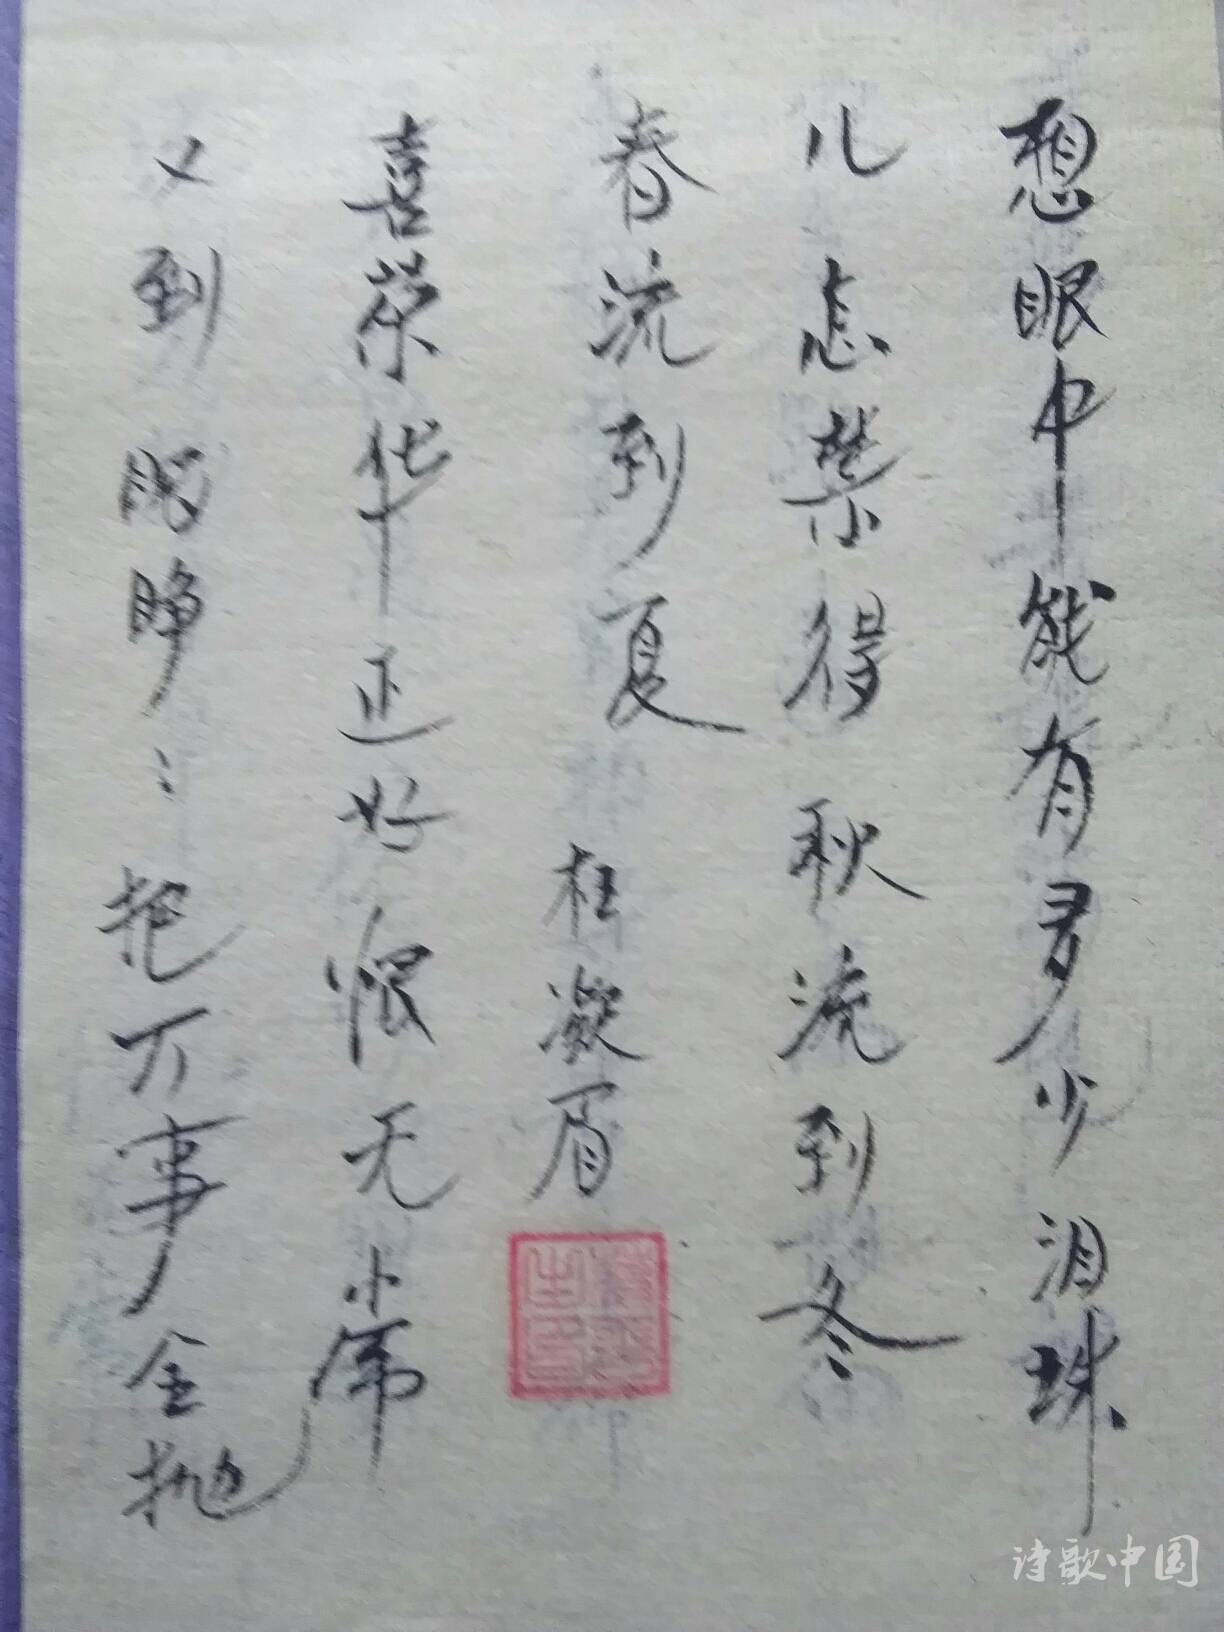 想眼中能有多少泪珠
儿怎禁得秋流到冬
春流到夏 枉凝眉
喜荣华正好恨无常
又到眼睁:把万事全抛
诗歌中国